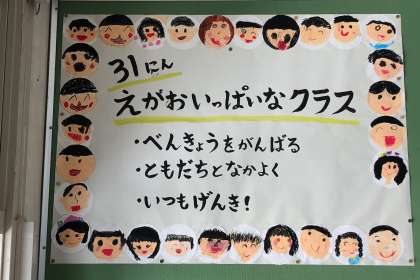 31にん
えがおいっぱいなクラス
・べんきょうをがんばる
・ともだちとなかよく
・いつもげんき!